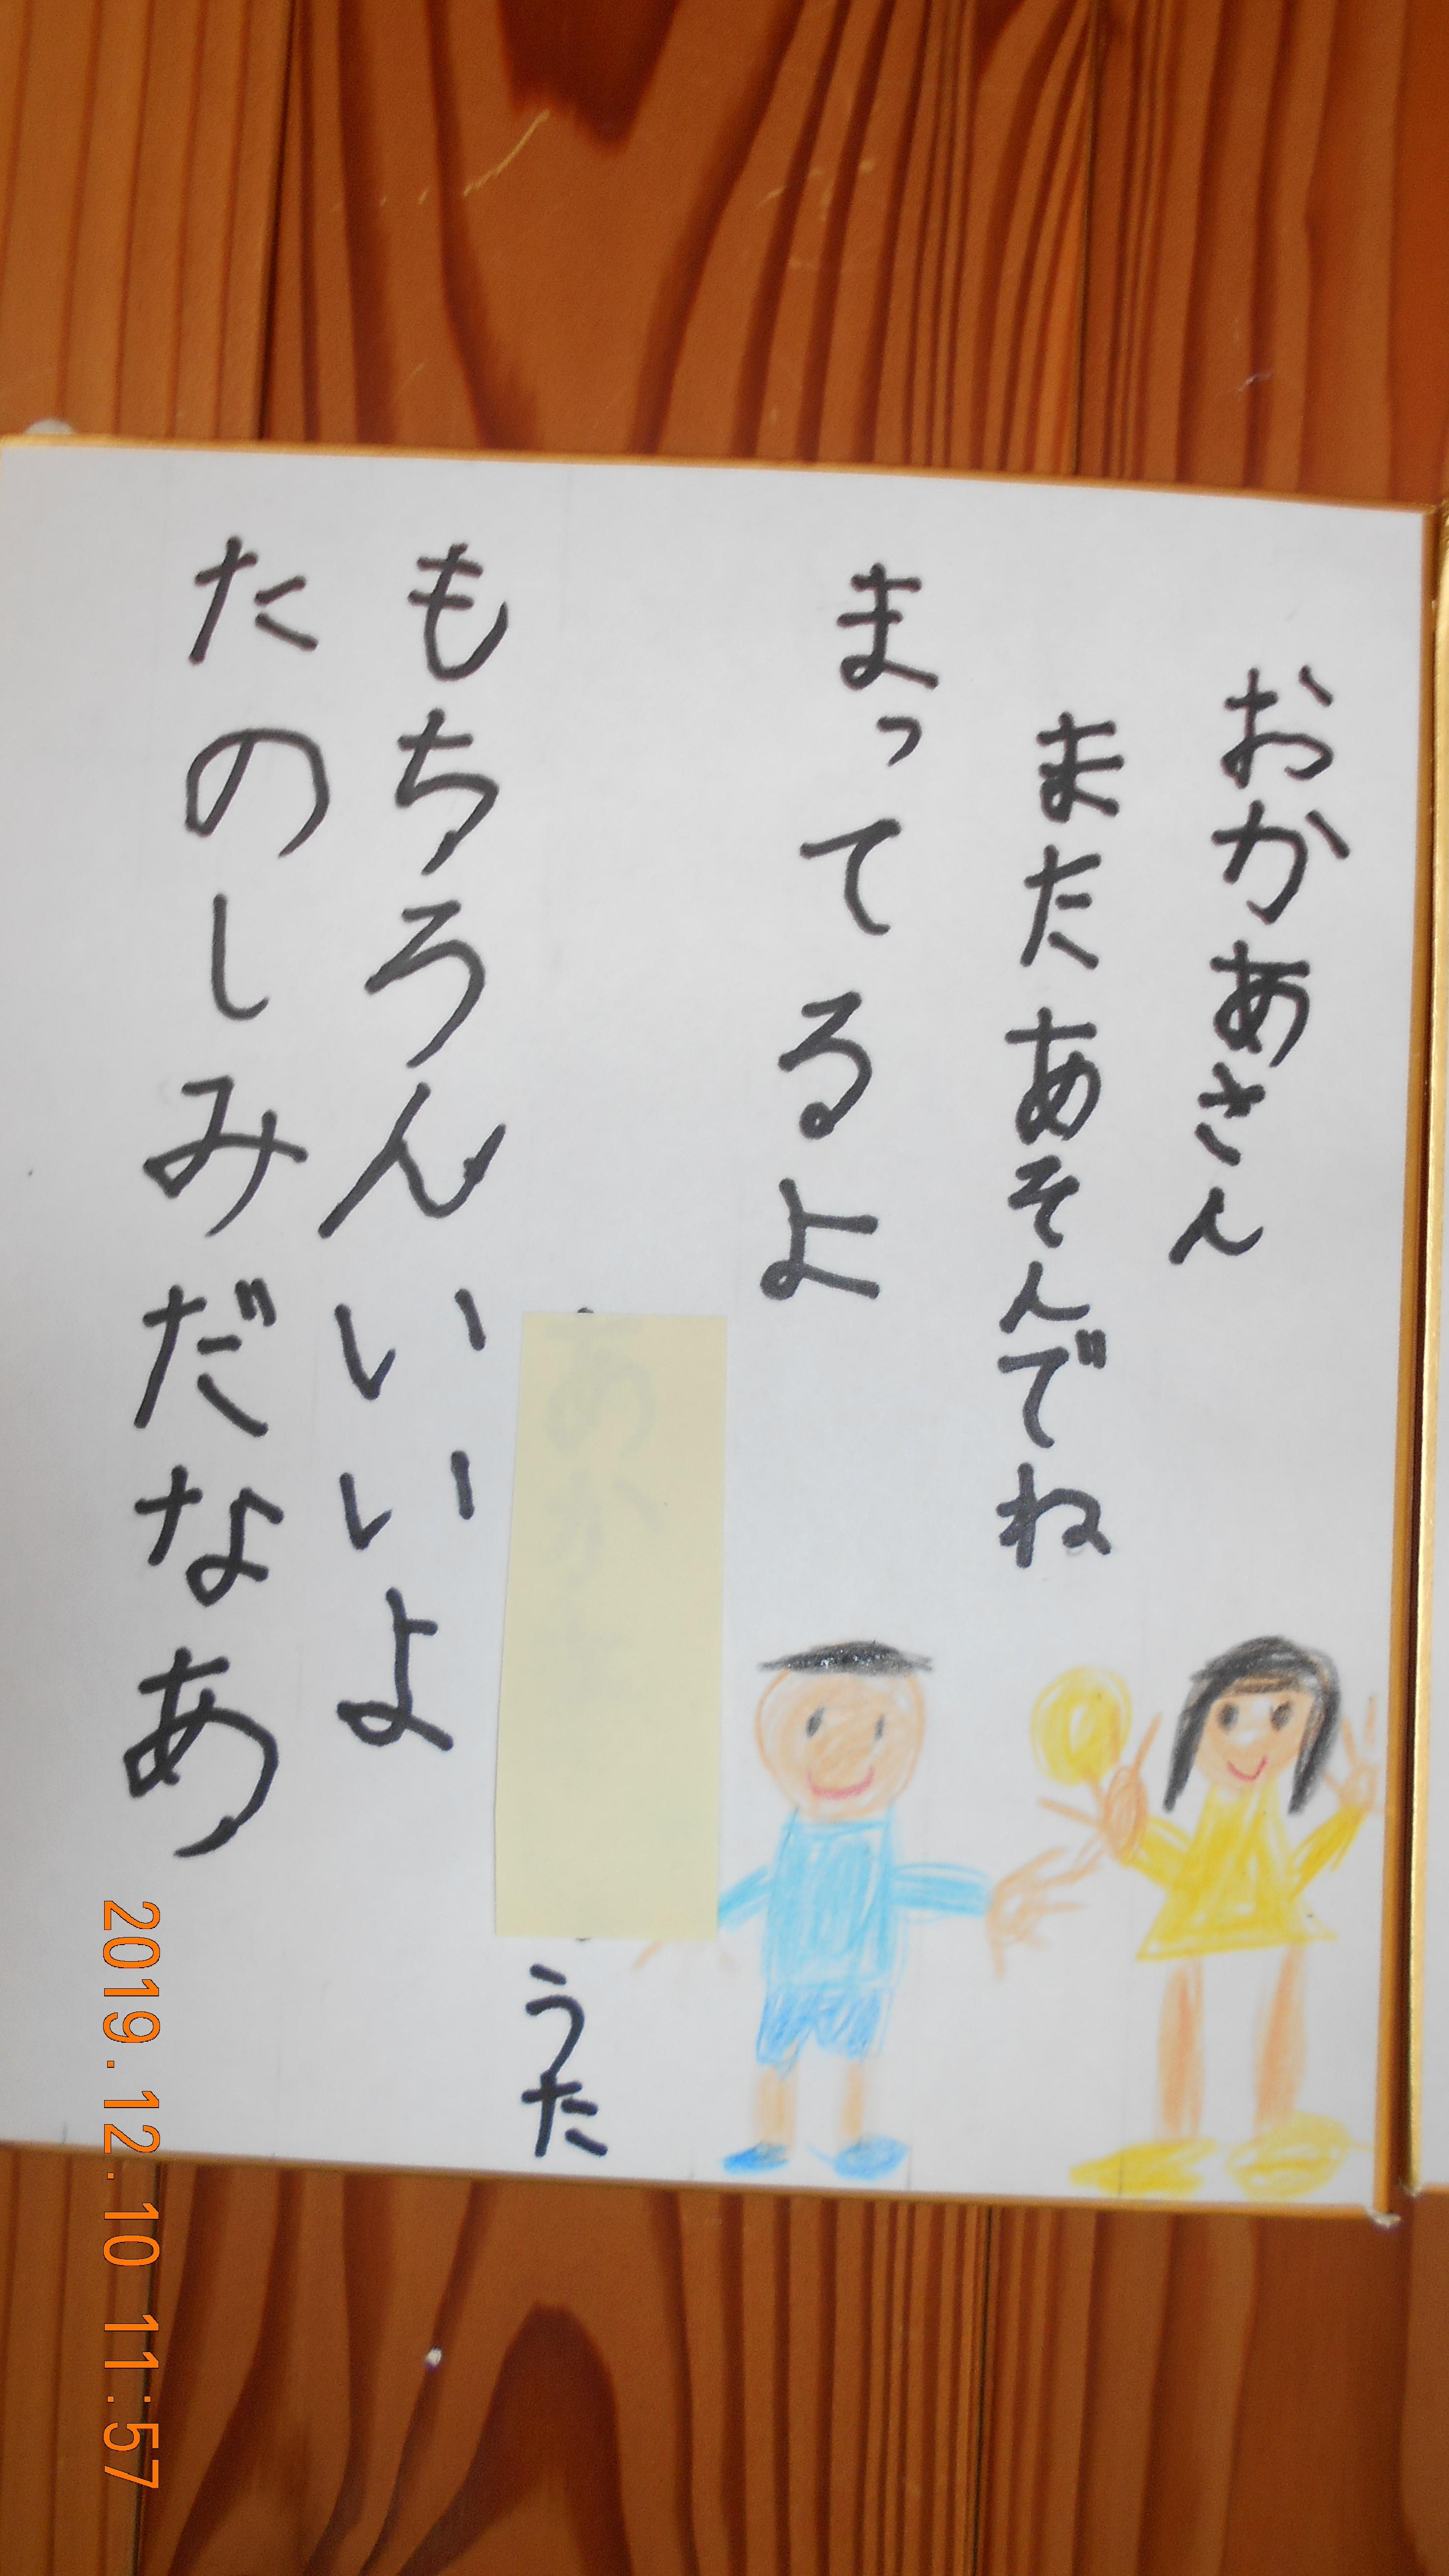 おかあさん
またあそんでね
まってるよ
うた
もちろんいいよ
たのしみだなあ
2019.12.10 11:57